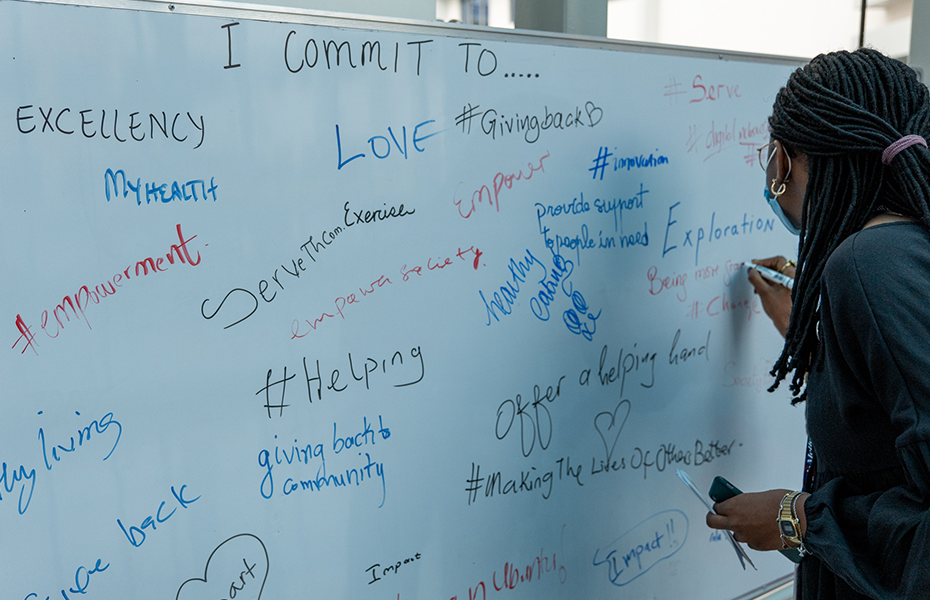 I COMMIT TO.....
EXCELLENCY
LOVE
#GivingbackB
#Serve
# digital
MY HEALTH
Empower
#innovation
#empowerment
Serve Th Com. Exercise
provide support
to people in need
Exploration
empower society.
healthy
eating
Being more
#Change
#Helping
Offer a helping hand
living
giving back to
community
#Making The Lives Of Others Better
back
Impact
Impact!!
Ubuntu!